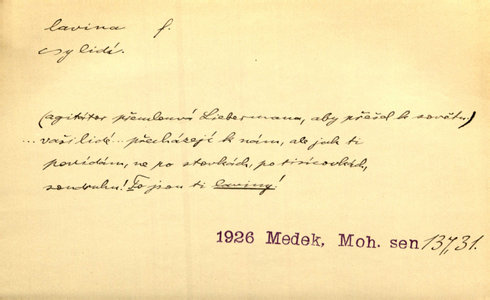 lavina f.
lidí.
(agitátor přemlouvá Liebermana, aby přešel k sovětu)
... vaši lidé ... přecházejí k nám, ale jak ti
povídám, ne po stovkách, po tisícovkách,
soudruhu! To jsou ti laviny!
1926 Medek, Moh. sen 137, 31.